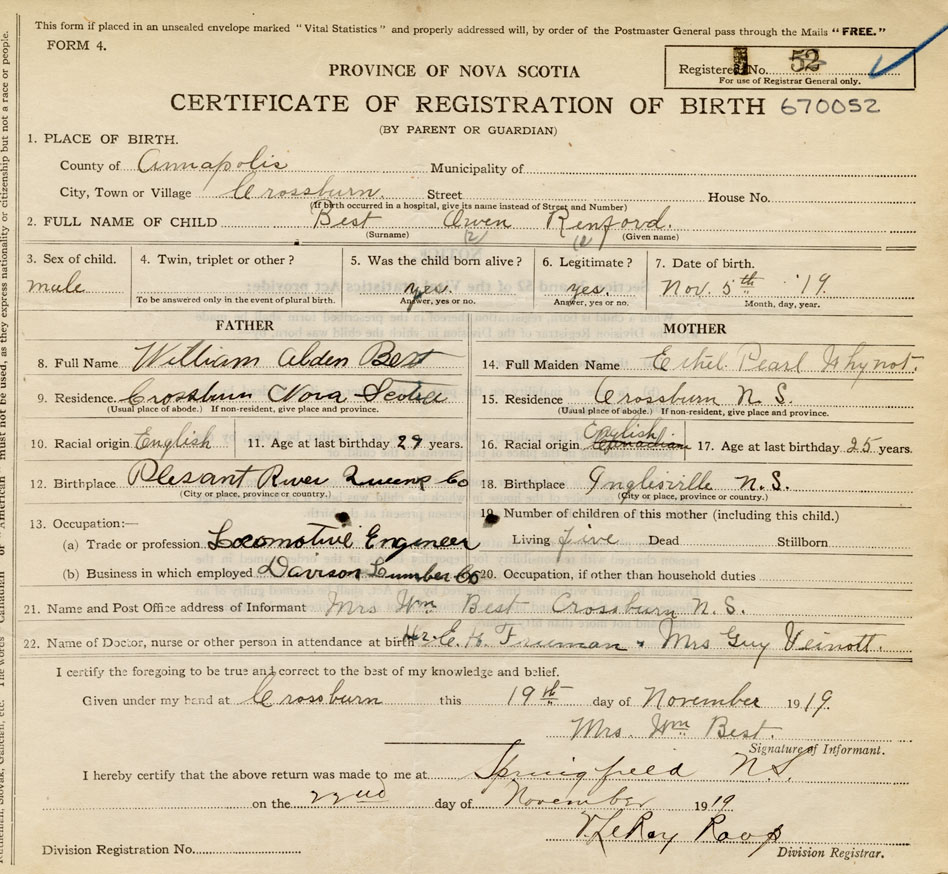 This form if placed in an unsealed envelope marked "Vital Statistics" and properly addressed will, by order of the Postmaster General pass through the Mails "FREE."
FORM 4.
Registered No. 52
For use of Registrar General only.
PROVINCE OF NOVA SCOTIA
CERTIFICATE OF REGISTRATION OF BIRTH 670052
(BY PARENT OR GUARDIAN)
1. PLACE OF BIRTH.
County of Annapolis Municipality of
City, Town or Village Crossburn Street House No.
(If birth occurred in a hospital, give its name instead of Street and Number)
2. FULL NAME OF CHILD Best Owen Renford.
(Surname) (Given name)
3. Sex of child. 4. Twin, triplet or other? 5. Was the child born alive? 6. Legitimate? 7. Date of birth.
male yes. yes. Nov. 5th '19.
To be answered only in the event of plural birth. Answer, yes or no. Answer, yes or no. Month, day, year.
FATHER MOTHER
8. Full Name William Alden Best 14. Full Maiden Name Ethel Pearl Whynot.
9. Residence. Crossburn Nova Scotia 15. Residence Crossburn N.S.
(Usual place of abode.) If non-resident, give place and province. (Usual place of abode.) If non-resident, give place and province.
10. Racial origin English 11. Age at last birthday 29 years. 16. Racial origin English Canadian 17. Age at last birthday 25 years.
12. Birthplace Plesant River Queens Co 18. Birthplace Inglisville N.S.
(City or place, province or country.) (City or place, province or country.)
13. Occupation:— 19. Number of children of this mother (including this child.)
(a) Trade or profession Locomotive Engineer Living five Dead Stillborn
(b) Business in which employed Davison Lumber Co 20. Occupation, if other than household duties
21. Name and Post Office address of Informant Mrs Wm Best Crossburn N.S.
22. Name of Doctor, nurse or other person in attendance at birth E. H. Freeman Mrs Guy Veinott.
I certify the foregoing to be true and correct to the best of my knowledge and belief.
Given under my hand at Crossburn this 19th day of November 1919.
Mrs. Wm Best.
Signature of Informant.
I hereby certify that the above return was made to me at Springfield N.S.
on the 22nd day of November 1919
LeRoy Roop
Division Registrar.
Division Registration No.